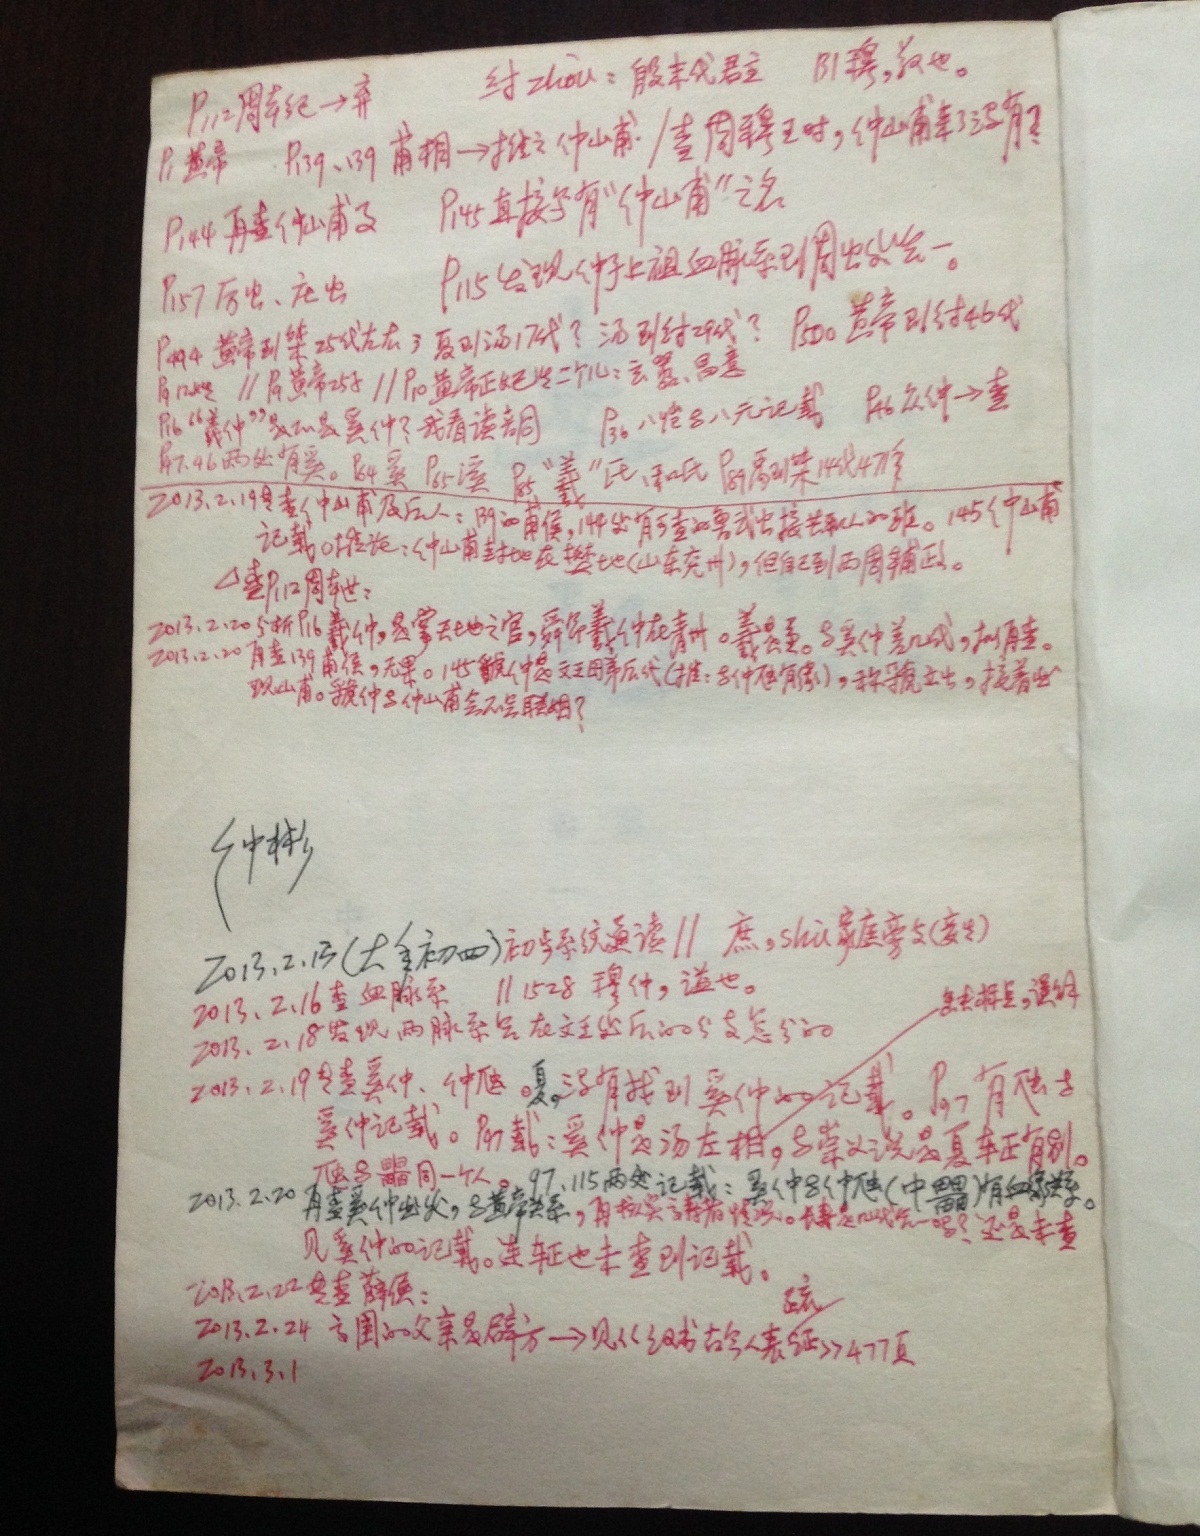 P112周本纪→弃 纣zhòu：殷末代君主 131穆，敬也。
P1黄帝 P139、139 甫相→推之仲山甫 / 查周穆王时，仲山甫来了没有？
P144再查仲山甫及 P145直接写有“仲山甫”之名
P157厉出、庄出 P115发现仲子上祖血脉系到周出
P494 黄帝到桀25代左右；夏到汤17代？汤到纣29代？ P500黄帝到纣46代
P9 12姓 // P9黄帝25子 // P10黄帝正妃生二个儿：玄嚣、昌意
P16“羲仲”是不是奚仲？我看读音同 P36八恺与八元记载 P46众仲→查
P47.96两处有奚。P64奚 P65溪 P85“羲”氏，和氏 P89禹到桀14代47年
2013.2.19专查仲山甫及后人：139的甫侯，144处有可查的鲁武出接去 的班。145仲山甫
记载。推论：仲山甫封地在樊地(山东兖州)，但自己到西周辅政。
△查P112周本世：
2013.2.20分析P16羲仲，是掌天地之官，舜命羲仲在青州。羲是 与奚仲差几代，拟再查。
2013.2.20再查139甫侯，无果。145虢仲是文王 后代(推：与仲虺有缘)，称虢立出，接着出
现山甫。虢仲与仲山甫会不会联姻？
仲彬
2013.2.13(大年初四)初步系统通读 // 庶，shù家庭旁支(妾生)
2013.2.16查血脉系 // 1528穆仲，谥也。
2013.2.18发现两脉系另在文王处后的分支怎分的
2013.2.19专查奚仲、仲虺。夏，没有找到奚仲的记载。P97有虺与
奚仲记载。P97载：奚仲是汤左相，与崇义说是夏车正有别。
虺与嚣同一个人。97、115两处记载：奚仲与仲虺(中嚣)有血缘关系。
2013.2.20再查奚仲出处，与黄帝关系，再核实 情况。 还是未查
见奚仲的记载。连车正也未查到记载。
2013.2.22专查薛侯：
2013.2.24 方围的父亲是辟方→见《汉书古今人表疏证》477页
2013.3.1